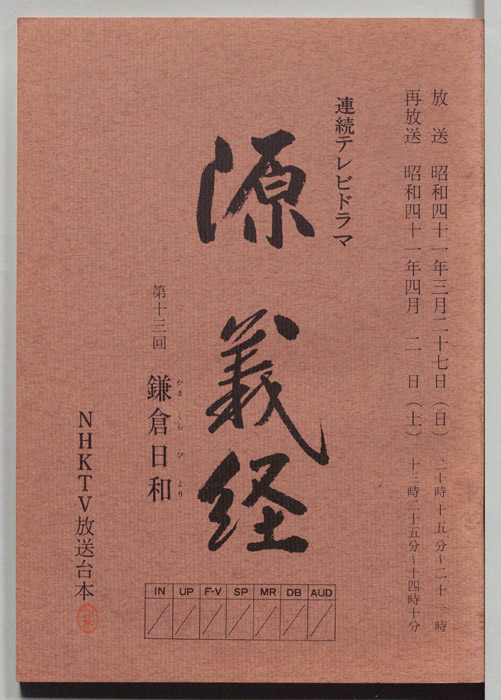 放送 昭和四十一年三月二十七日（日） 二十時十五分～二十一時
再放送 昭和四十一年四月二日（土） 十三時二十五分～十四時十分
連続テレビドラマ
源義経
第十三回
鎌倉日和
かまくらびより
NHKTV放送台本
IN UP F-V SP MR DB AUD